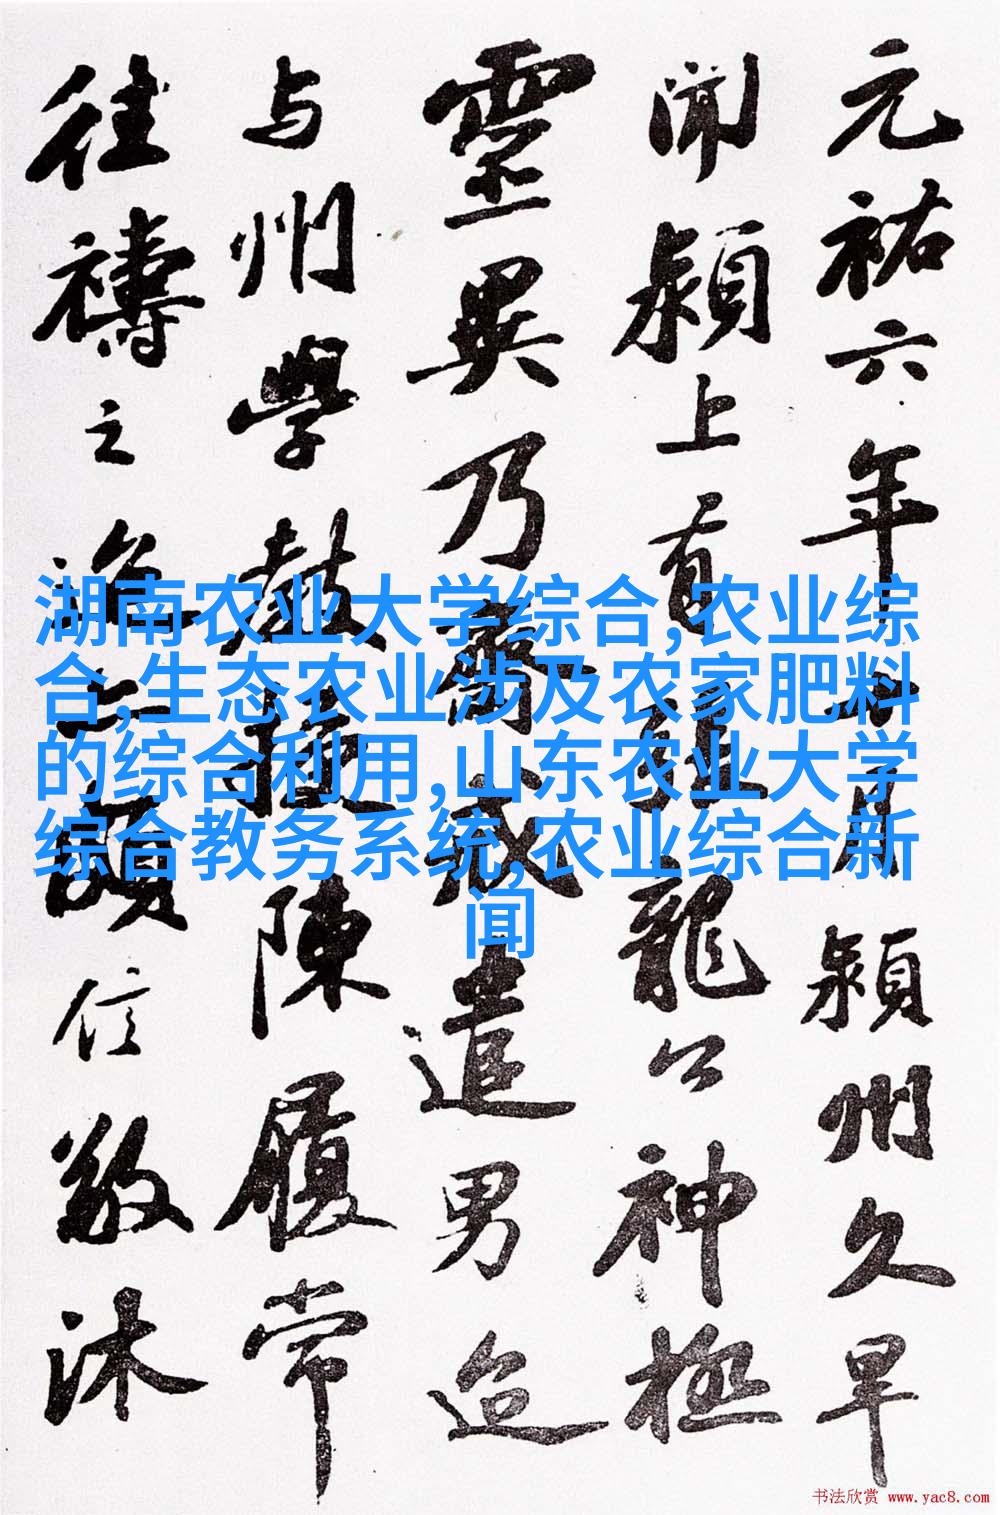 元祐六年十月潁州久旱
聞潁上有張龍公神極
靈異乃齋戒遣男迨
与州學教授陳履常
往禱之迨亦頗信敬沐
湖南农业大学综合,农业综
合,生态农业涉及农家肥料
的综合利用,山东农业大学
综合教务系统,农业综合新
闻
书法欣赏 www.yac8.com